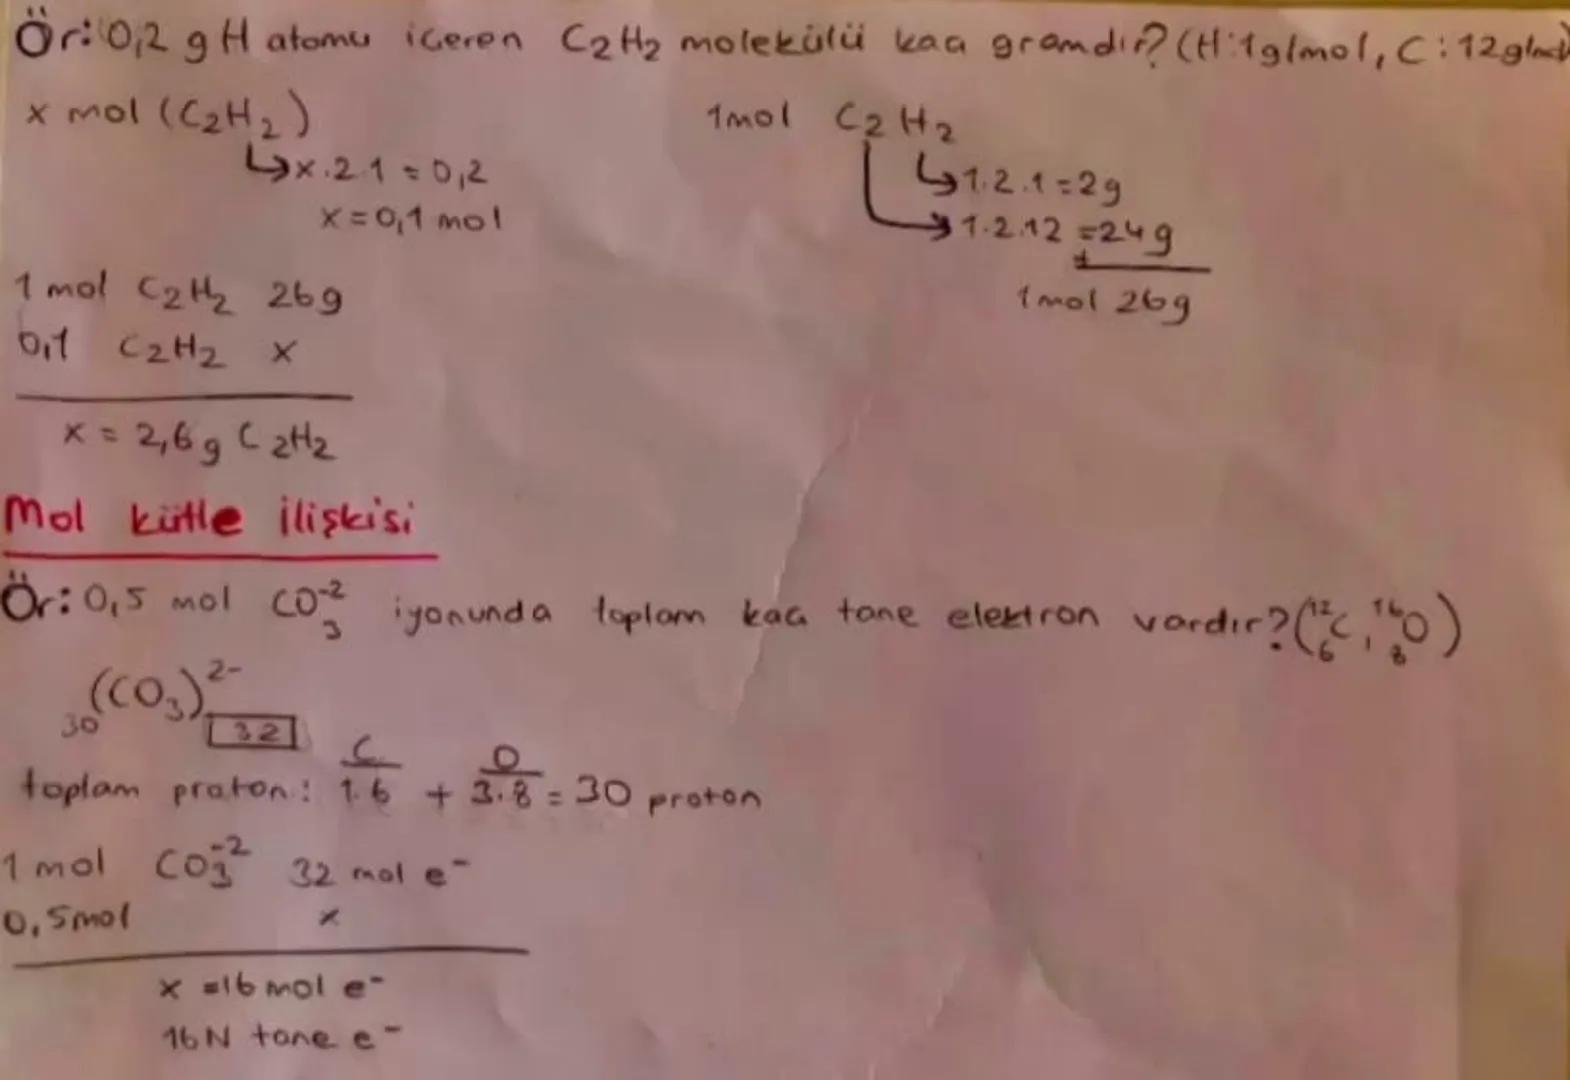 Ör: 0,2 g H atomu içeren C₂H₂ molekülü kaç gramdır? (H:1g/mol, C:12g/mol)
x mol (C₂H₂)
↳x.2.1 = 0,2
x = 0,1 mol
1mol C₂H₂
↳1.2.1=2g
↳1.2.12 =24g
+
1mol 26g
1 mol C₂H₂ 26g
0,1 C₂H₂ x
x = 2,6g C₂H₂
Mol kütle ilişkisi
Ör: 0,5 mol CO₃⁻² iyonunda toplam kaç tane elektron vardır? (¹²₆C, ¹⁶₈O)
₃₀(CO₃)²⁻ 32
C O
toplam proton: 1.6 + 3.8 = 30 proton
1 mol CO₃⁻² 32 mol e⁻
0,5mol x
x =16 mol e⁻
16N tane e⁻